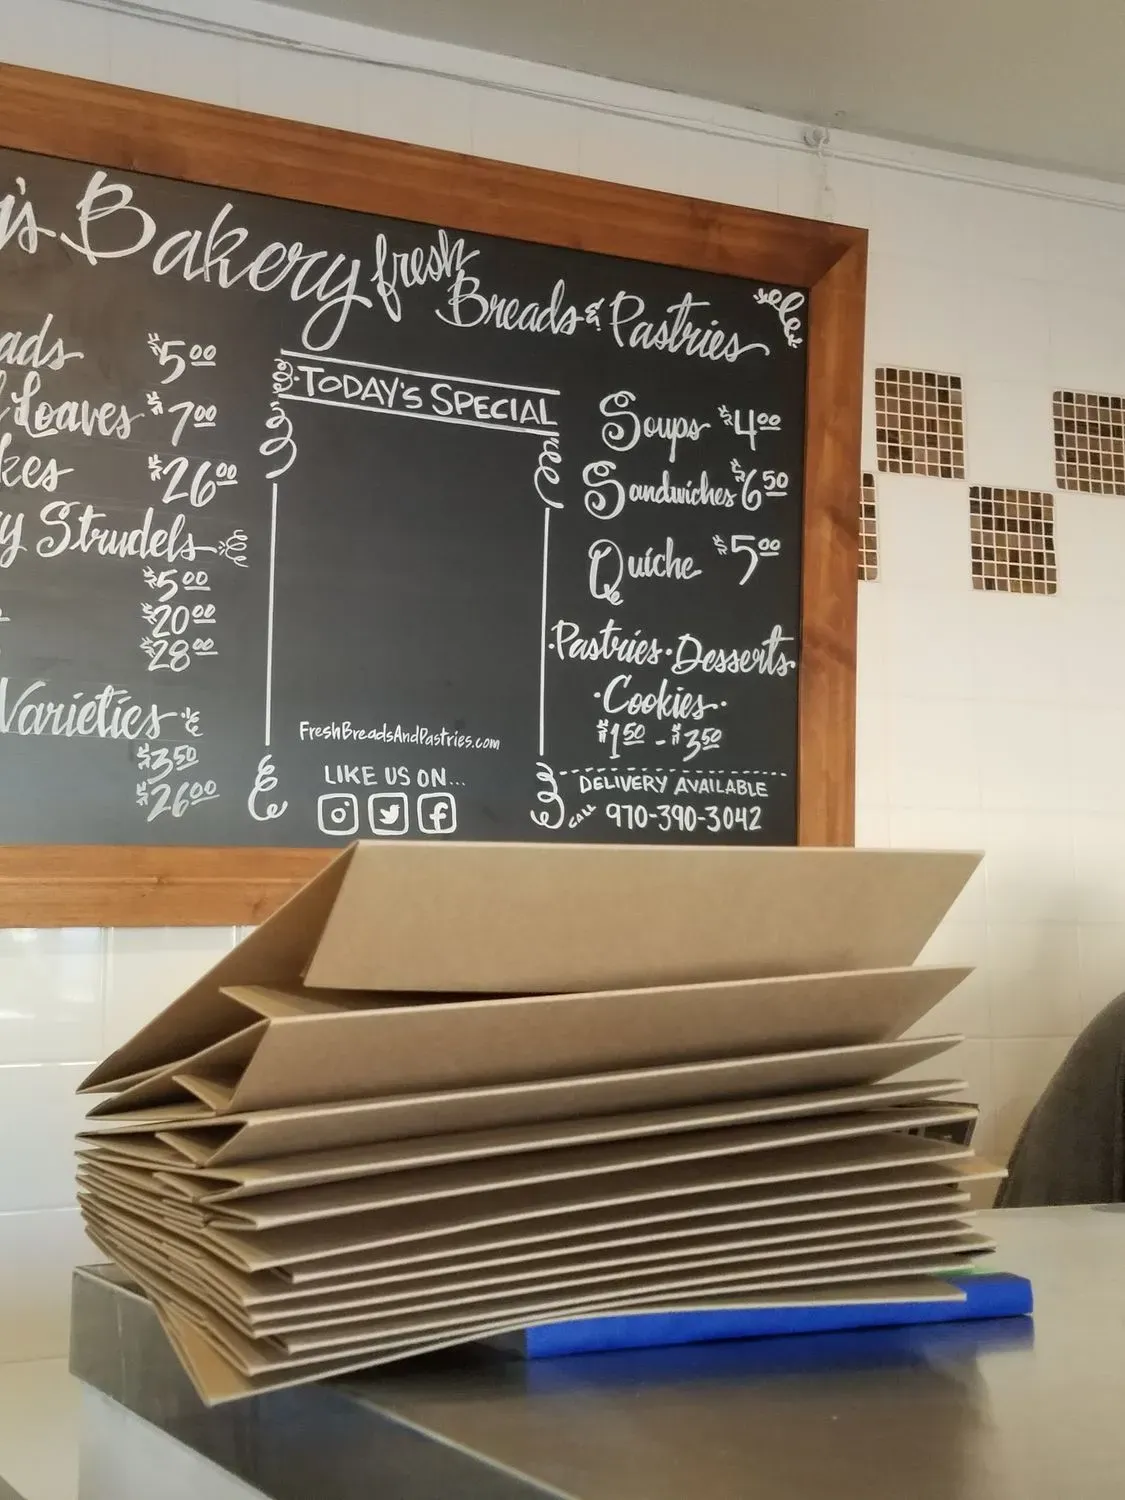 's Bakery fresh
Breads & Pastries
$5.00
Loaves $7.00
$26.00
Strudels
$5.00
$20.00
$28.00
Varieties
$3.50
$26.00
TODAY'S SPECIAL
FreshBreadsAndPastries.com
LIKE US ON...
Soups $4.00
Sandwiches $6.50
Quiche $5.00
·Pastries·Desserts·
·Cookies·
$1.50 - $3.50
DELIVERY AVAILABLE
CALL 970-390-3042